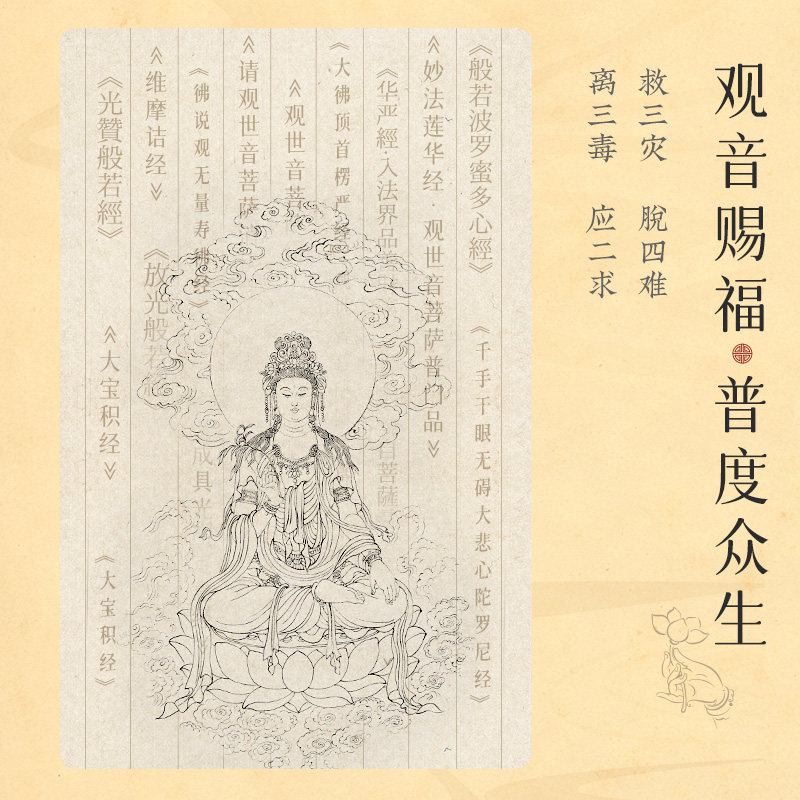 观音赐福
普度众生
救三灾 脫四难
离三毒 应二求
《般若波罗蜜多心經》
《千手千眼无碍大悲心陀罗尼经》
《妙法莲华经·观世音菩萨普门品》
《华严經·入法界品
音菩薩
《大佛顶首楞严经
《观世音菩
《请观世音菩萨
《佛说观无量寿佛经》
成具光
《维摩诘经》
《放光般若
《光贊般若經》
《大宝积经》
《大宝积经》